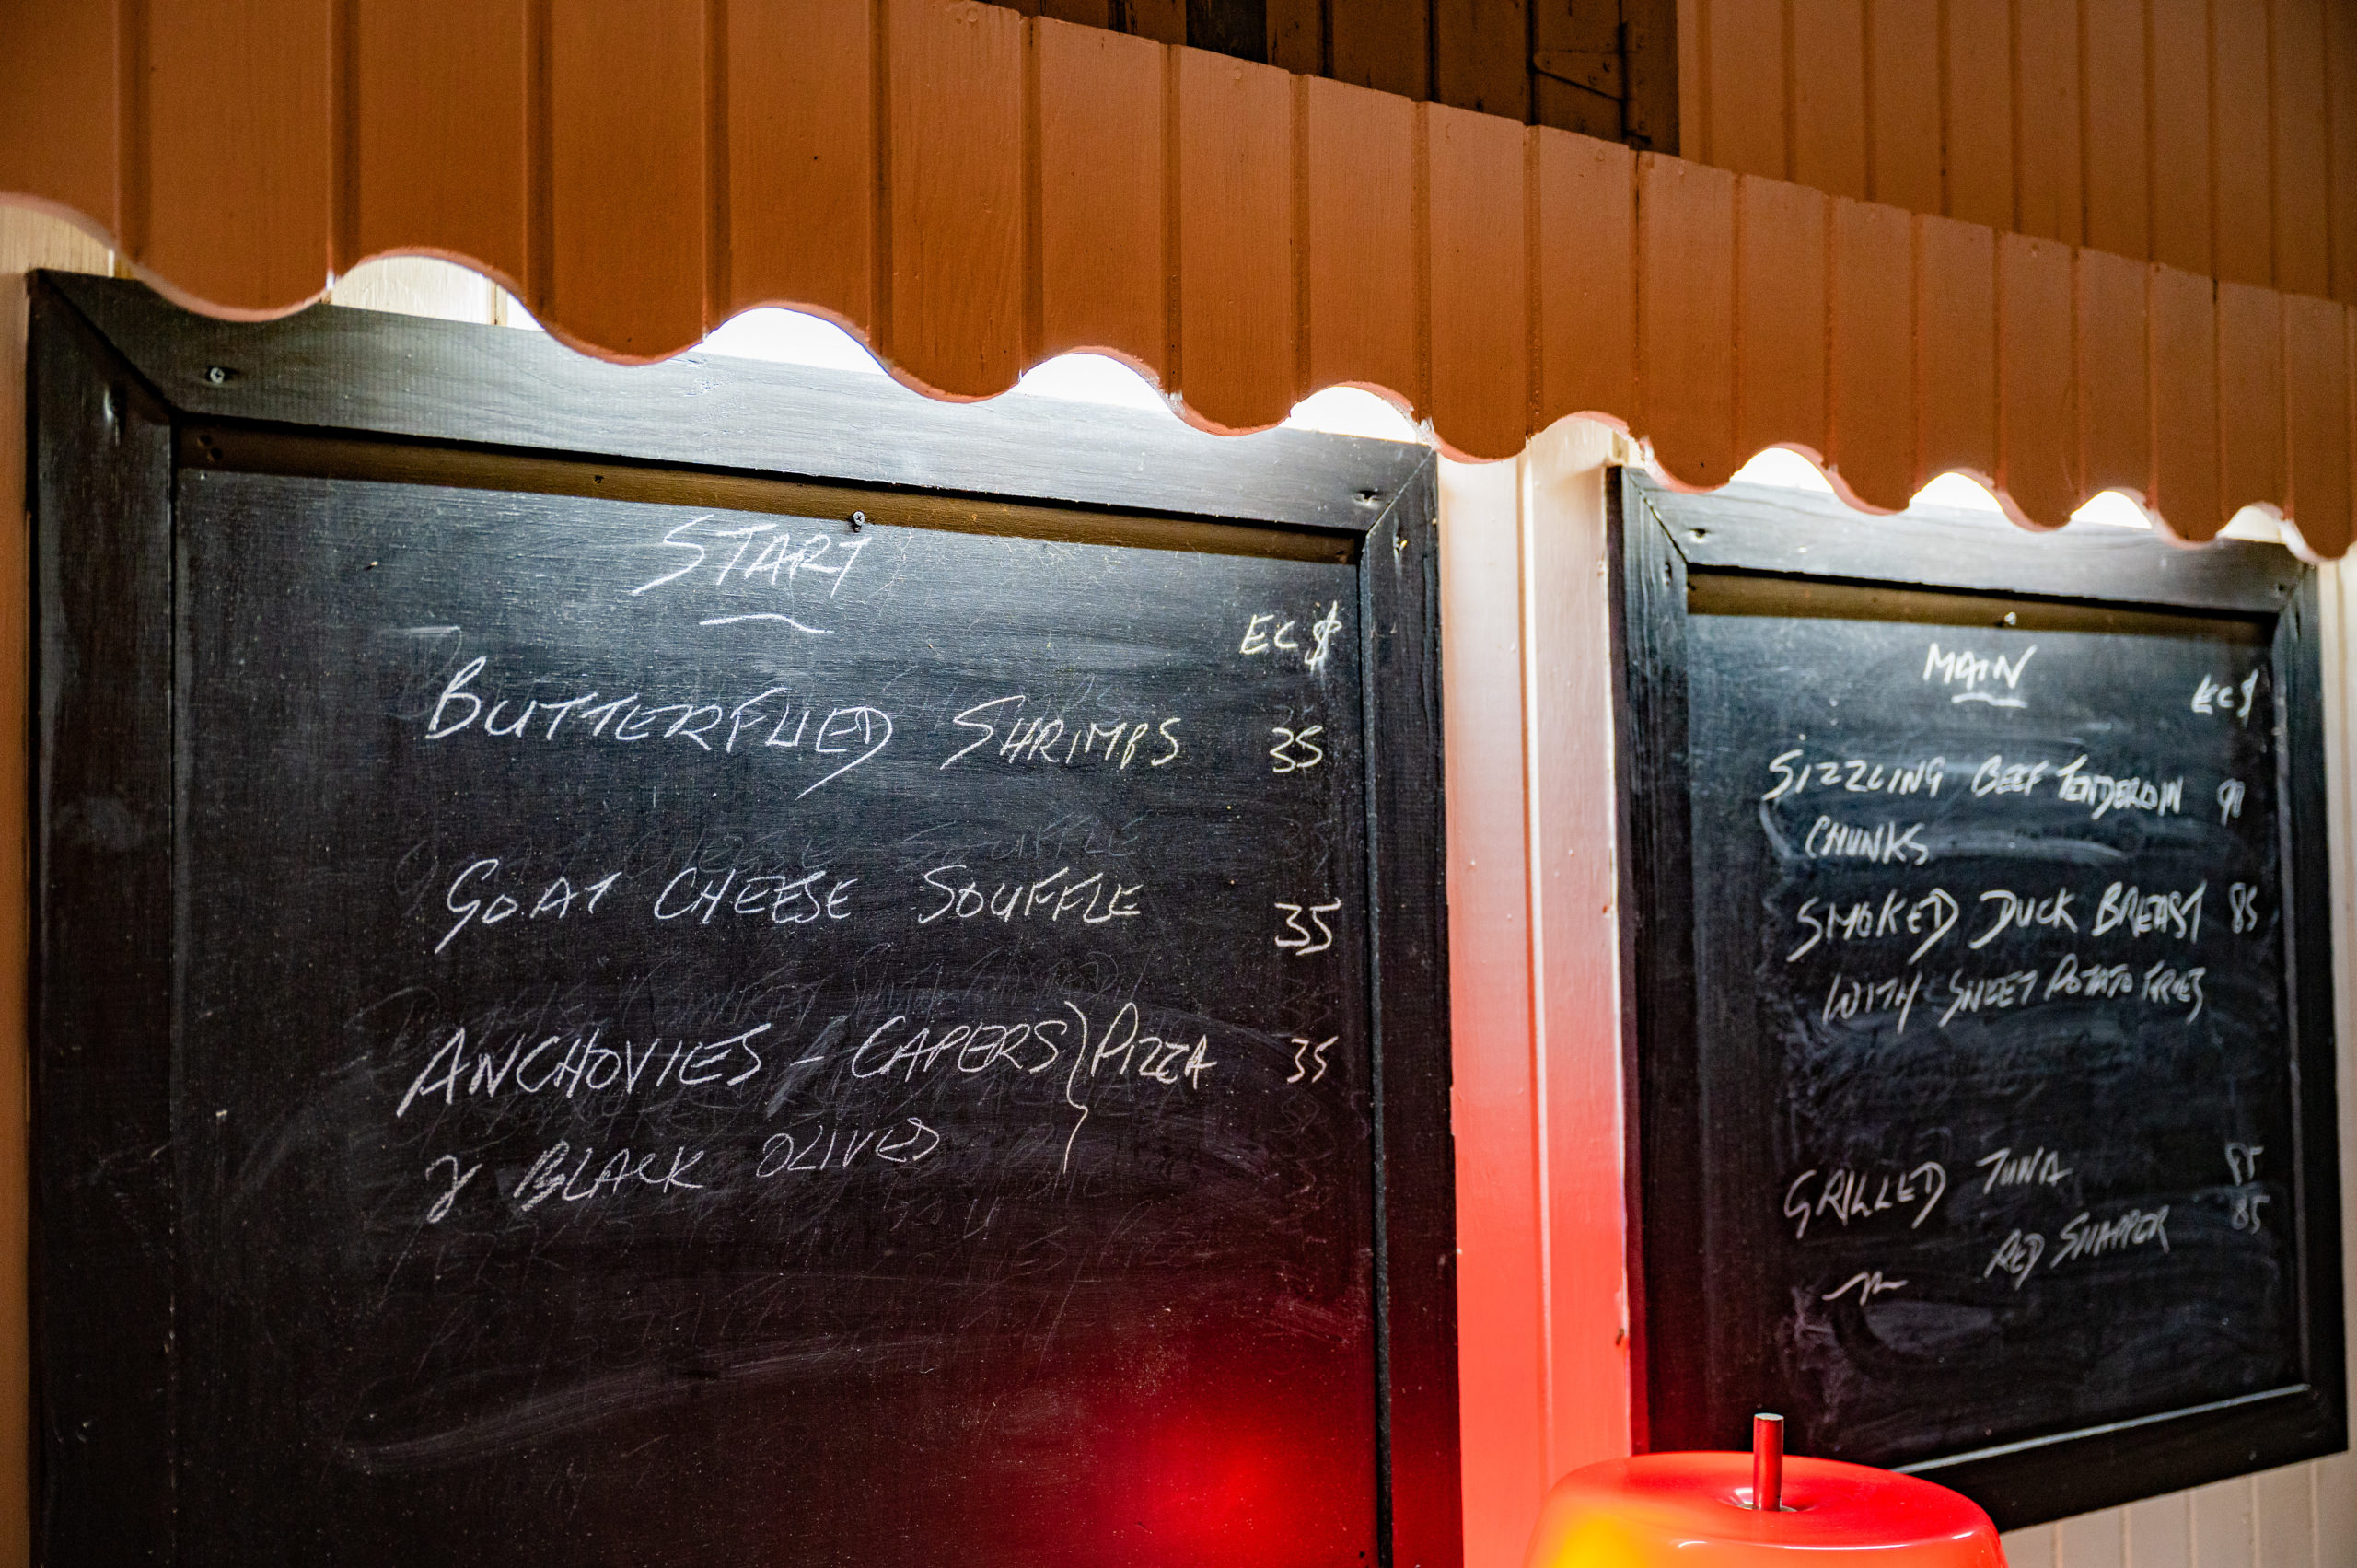 START
EC $
BUTTERFLIED SHRIMPS 35
GOAT CHEESE SOUFFLE 35
ANCHOVIES - CAPERS } PIZZA 35
& BLACK OLIVES
MAIN
EC $
SIZZLING BEEF TENDERLOIN 90
CHUNKS
SMOKED DUCK BREAST 85
WITH SWEET POTATO FRIES
GRILLED TUNA 85
RED SNAPPER 85